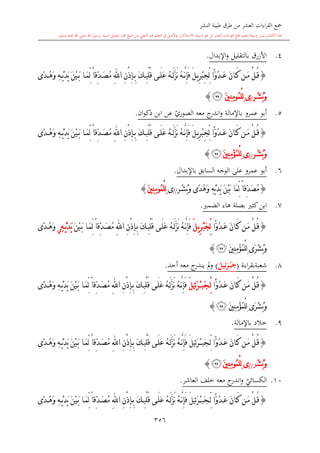 جمع القراءات العشر من طرق طيبة النشر
٤. الأزرق بالتقليل والإبدال.
﴿ قُلْ مَن كَانَ عَدُوًّا لِّجِبْرِيلَ فَإِنَّهُ نَزَّلَهُ عَلَى قَلْبِكَ بِإِذْنِ اللَّهِ مُصَدِّقًا لِّمَا بَيْنَ يَدَيْهِ وَهُدًى
وَبُشْرَى لِلْمُؤْمِنِينَ ٩٧ ﴾
٥. أبو عمرو بالإمالة واندرج معه الصوري عن ابن ذكوان.
﴿ قُلْ مَن كَانَ عَدُوًّا لِّجِبْرِيلَ فَإِنَّهُ نَزَّلَهُ عَلَى قَلْبِكَ بِإِذْنِ اللَّهِ مُصَدِّقًا لِّمَا بَيْنَ يَدَيْهِ وَهُدًى
وَبُشْرَى لِلْمُؤْمِنِينَ ٩٧ ﴾
٦. أبو عمرو على الوجه السابق بالإبدال.
﴿ مُصَدِّقًا لِّمَا بَيْنَ يَدَيْهِ وَهُدًى وَبُشْرَى لِلْمُومِنِينَ ﴾
٧. ابن كثير بصلة هاء الضمير.
﴿ قُلْ مَن كَانَ عَدُوًّا لِّجَبْرِيلَ فَإِنَّهُ نَزَّلَهُ عَلَى قَلْبِكَ بِإِذْنِ اللَّهِ مُصَدِّقًا لِّمَا بَيْنَ يَدَيْهِ وَهُدًى
وَبُشْرَى لِلْمُؤْمِنِينَ ٩٧ ﴾
٨. شعبة بقراءة (جَبْرَئِلَ) ولم يندرج معه أحد.
﴿ قُلْ مَن كَانَ عَدُوًّا لِّجَبْرَئِلَ فَإِنَّهُ نَزَّلَهُ عَلَى قَلْبِكَ بِإِذْنِ اللَّهِ مُصَدِّقًا لِّمَا بَيْنَ يَدَيْهِ وَهُدًى
وَبُشْرَى لِلْمُؤْمِنِينَ ٩٧ ﴾
٩. خلاد بالإمالة.
﴿ قُلْ مَن كَانَ عَدُوًّا لِّجَبْرَئِيلَ فَإِنَّهُ نَزَّلَهُ عَلَى قَلْبِكَ بِإِذْنِ اللَّهِ مُصَدِّقًا لِّمَا بَيْنَ يَدَيْهِ وَهُدًى
وَبُشْرَى لِلْمُؤْمِنِينَ ٩٧ ﴾
١٠. الكسائيّ واندرج معه خلف العاشر.
﴿ قُلْ مَن كَانَ عَدُوًّا لِّجَبْرَئِيلَ فَإِنَّهُ نَزَّلَهُ عَلَى قَلْبِكَ بِإِذْنِ اللَّهِ مُصَدِّقًا لِّمَا بَيْنَ يَدَيْهِ وَهُدًى
٣٥٦